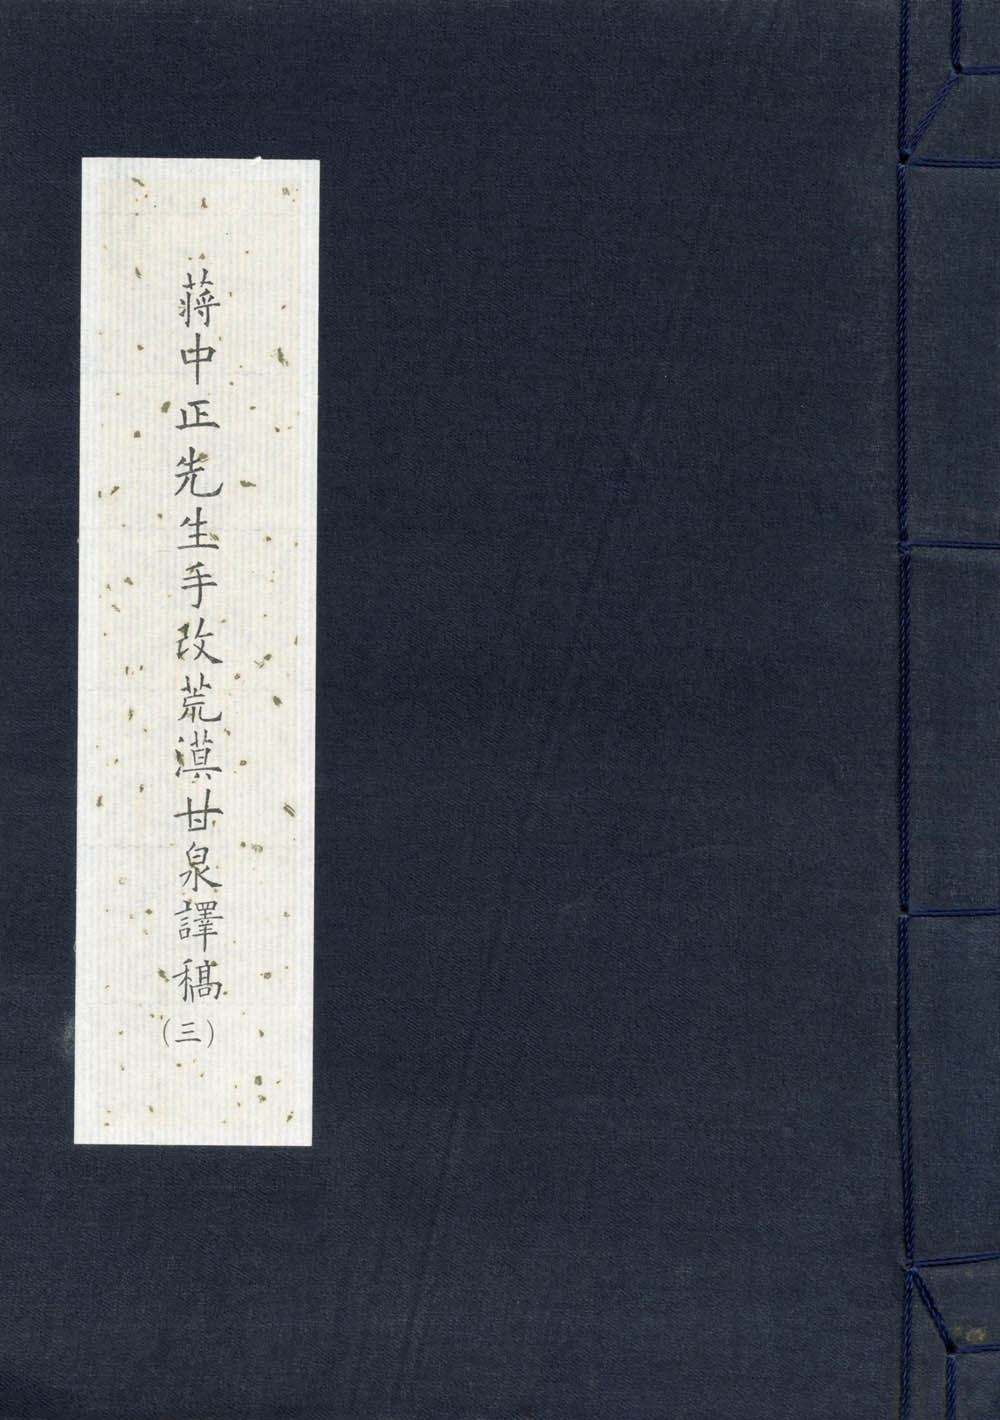 蔣中正先生手改荒漠甘泉譯稿(三)